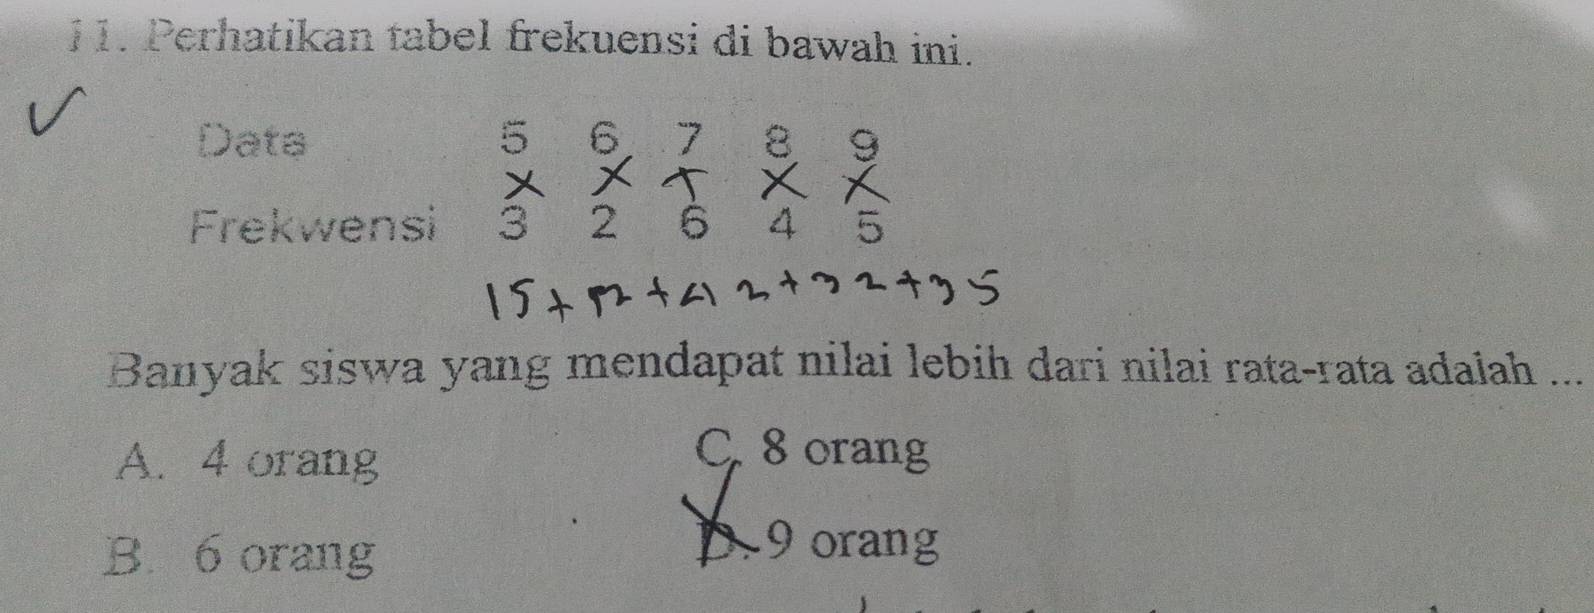 11. Perhatikan tabel frekuensi di bawah ini.
Data 5 6 7 8 9
x x x x x
Frekwensi 3 2 6 4 5
15+12+42+32+35
Banyak siswa yang mendapat nilai lebih dari nilai rata-rata adalah ...
A. 4 orang C. 8 orang
B. 6 orang D. 9 orang